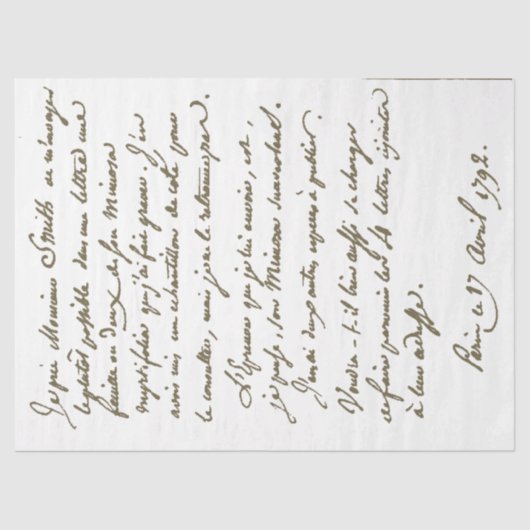 Je prie Monsieur Smith de m'envoyer
le plutôt possible dans une lettre une
feuille ou deux de son Minium
j'ai fait graver. J'en
avois mis un échantillon de coté pour
le consulter, mais je ne le retrouve pas.
L'Epreuve que je lui envoie, est,
je pense, son Minium
J'en ai deux autres, à publier.
Voudra-t-il bien aussi se charger
de faire parvenir les 4 lettres cijointes
à leur adresse.
Paris le 27 Avril 1792.